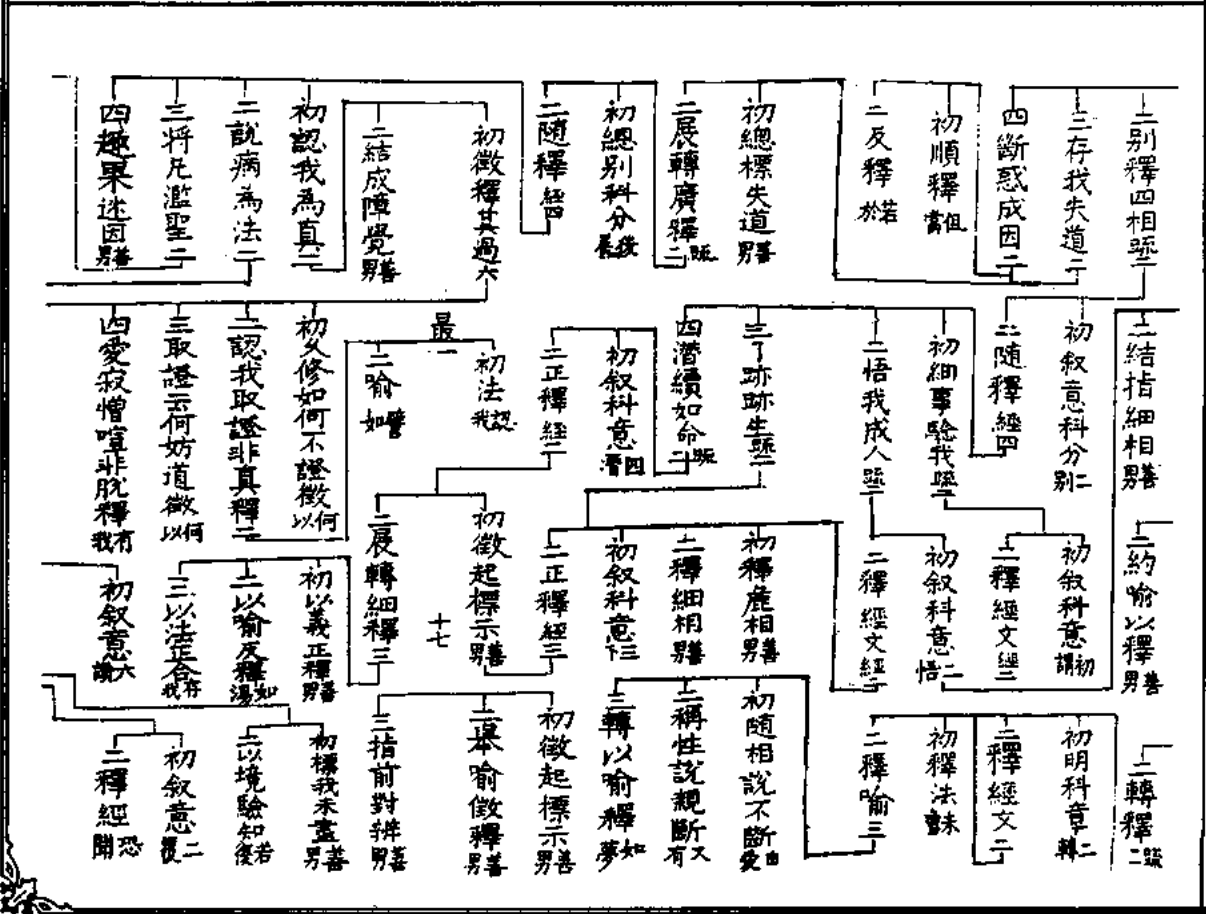 二別釋四相䟽二
三存我失道二
四斷惑成因二
初順釋但當
二反釋若於
初總標失道善男
二展轉廣釋䟽二
初總別科分後長
二隨釋經四
初徵釋其過六
二結成障覺善男
初認我為真二
二說病為法二
三將凡濫聖二
四趣果迷因善男
二結指細相善男
初叙意科分二別
二隨釋經四
初細事驗我䟽二
二悟我成人䟽二
三了跡跡生䟽二
四潛續如命䟽二
初叙科意四潛
二正釋經二
初法認我
最一
二喻譬如
初久修如何不證徵何以
二認我取證非真釋二
三取證云何妨道徵何以
四愛寂憎喧非脫釋有我
二約喻以釋善男
初叙科意初謂
二釋經文經二
初叙科意二悟
二釋經文經二
初釋麁相善男
二釋細相善男
初叙科意三下
二正釋經三
初徵起標示善男
十七
二展轉細釋三
初以義正釋善男
二以喻反釋如湯
三以法正合存我
初叙意六讚
二轉釋䟽二
初明科章二轉
二釋經文二
初釋法未盡
二釋喻三
初隨相說不斷由愛
二稱性說親斷又有
三轉以喻釋如夢
初徵起標示善男
二舉喻徵釋善男
三指前對辨善男
初標我未盡善男
二以境驗知若復
初叙意二復
二釋經恐開